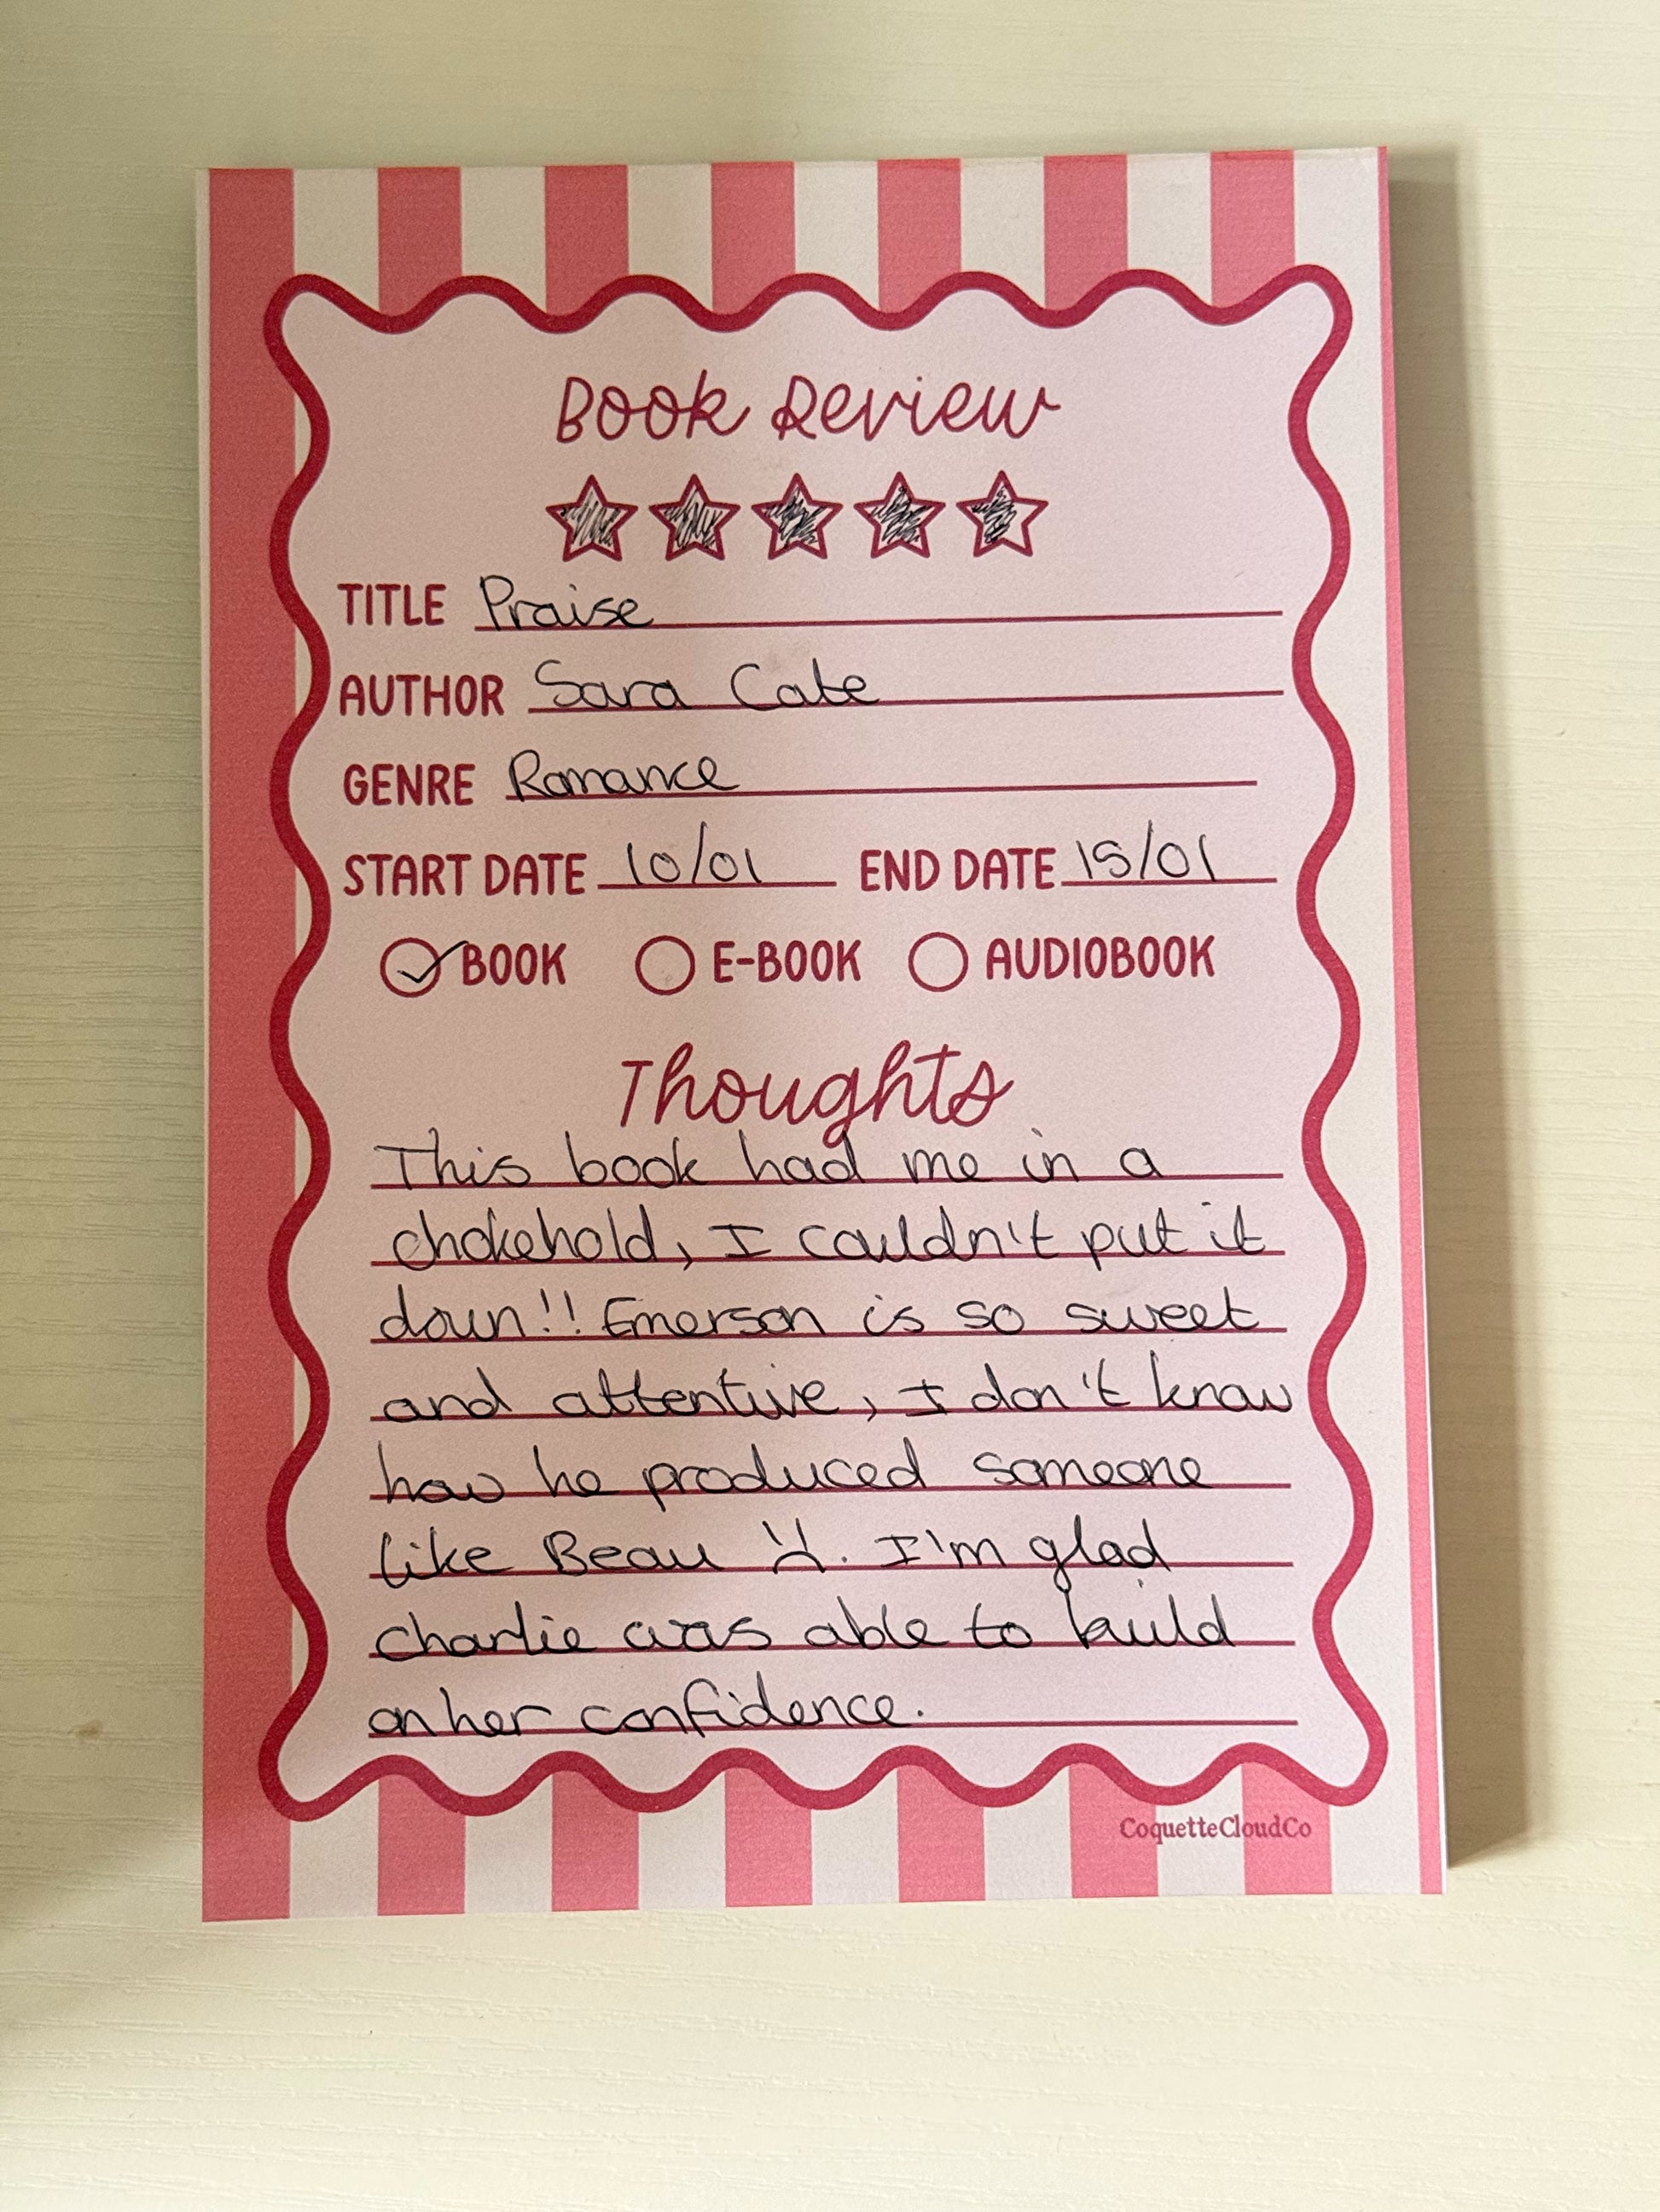 Book Review
TITLE Praise
AUTHOR Sara Cate
GENRE Romance
START DATE 10/01 END DATE 15/01
BOOK E-BOOK AUDIOBOOK
Thoughts
This book had me in a
chokehold, I couldn't put it
down!! Emerson is so sweet
and attentive, I don't know
how he produced someone
like Beau :(. I'm glad
Charlie was able to build
on her confidence.
CoquetteCloudCo